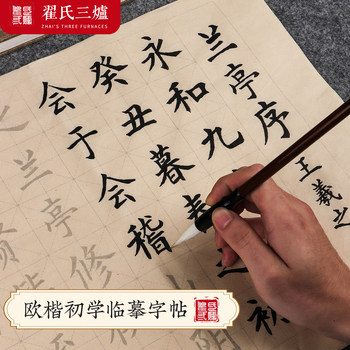 翟氏三爐
ZHAI'S THREE FURNACES
兰亭序
王羲之
永和九
癸丑暮春之初
会于会稽山阴
之兰亭修
贤
欧楷初学临摹字帖